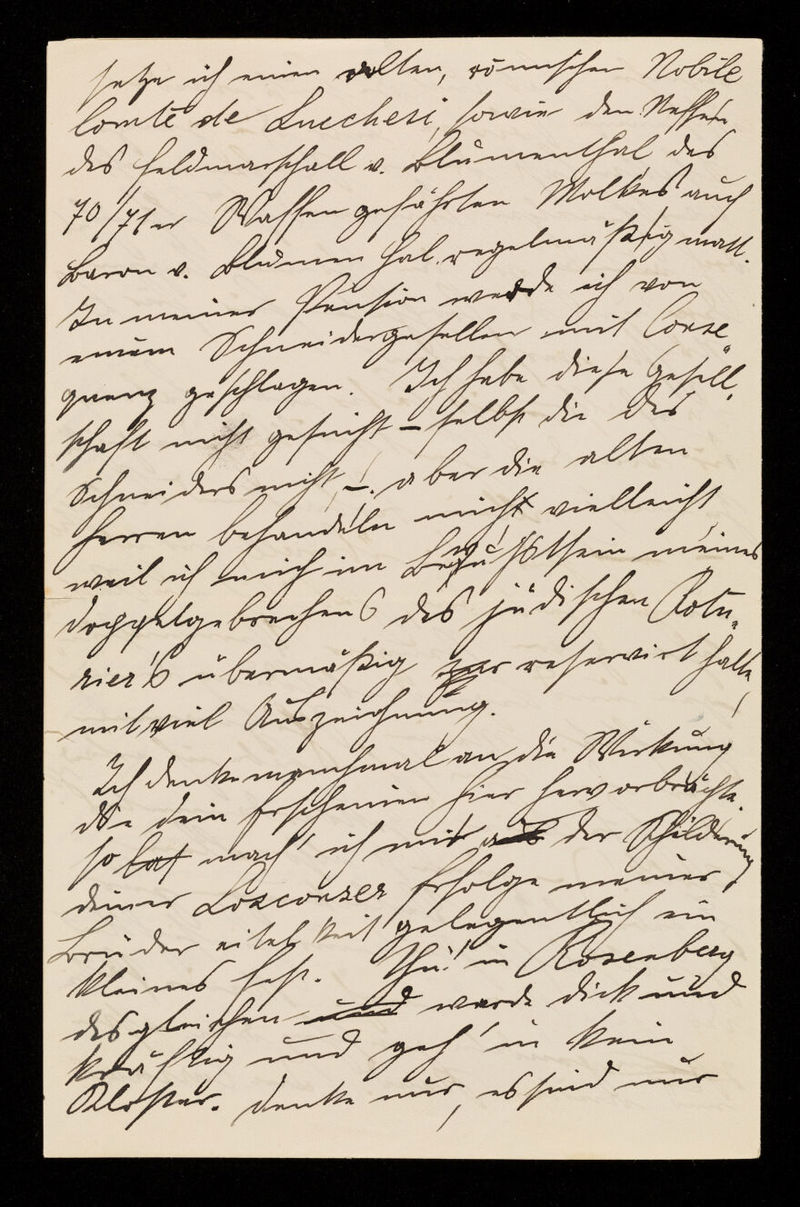 setze ich einen alten, römischen Nobile
Comte de Lucchesi, sowie den Neffen
des Feldmarschall v. Blumenthal des
70/71er Waffengefährten Moltkes auch
Baron v. Blumenthal regelmäßig matt.
In meiner Pension werde ich von
einem Schneidergesellen mit Conse
quenz geschlagen. Ich habe diese Gesell
schaft nicht gesucht – selbst die des
Schneiders nicht –. aber die alten
Herren behandeln mich vielleicht
weil ich mich im Bewußtsein meines
Doppelgebrechens des jüdischen Rotu-
rier's übermäßig reservirt halte,
mit viel Auszeichnung.
Ich denke manchmal an die Wirkung
die dein Erscheinen hier hervorbrächte.
so mach' ich mir aus der Schilderung
deiner Losconzer Erfolge meiner
Brüdereitelkeit gelegentlich ein
kleines Fest. Thu! in Rosenberg
desgleichen und werde dick und
kräftig und geh' in kein
Kloster. Denke nur, es sind nur